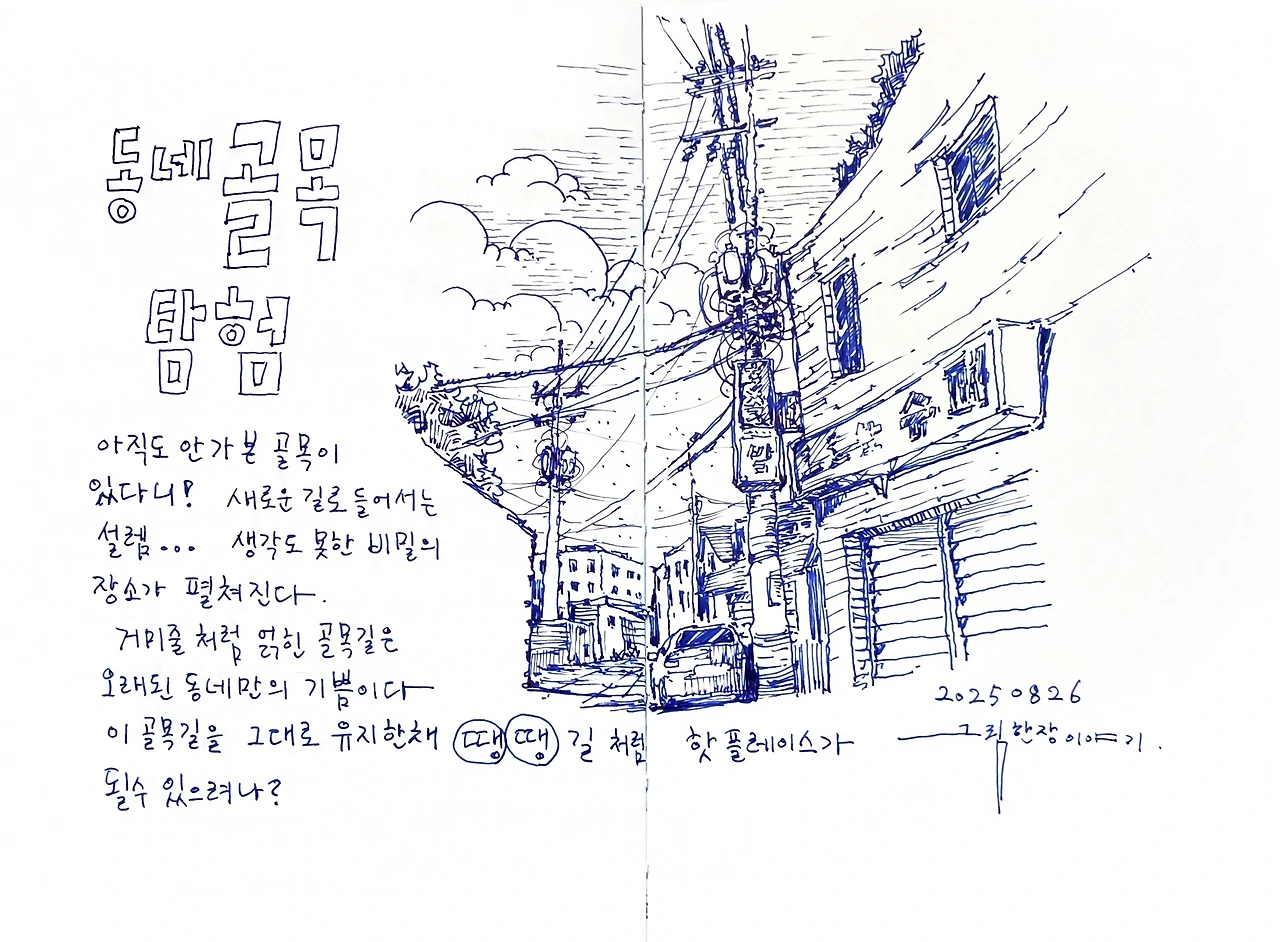 동네골목
탐험
아직도 안가본 골목이
있다니! 새로운 길로 들어서는
설렘... 생각도 못한 비밀의
장소가 펼쳐진다.
거미줄 처럼 얽힌 골목길은
오래된 동네만의 기쁨이다
이 골목길을 그대로 유지한채 땡땡 길 처럼 핫플레이스가
될수 있으려나?
20250826
그림한장이야기.